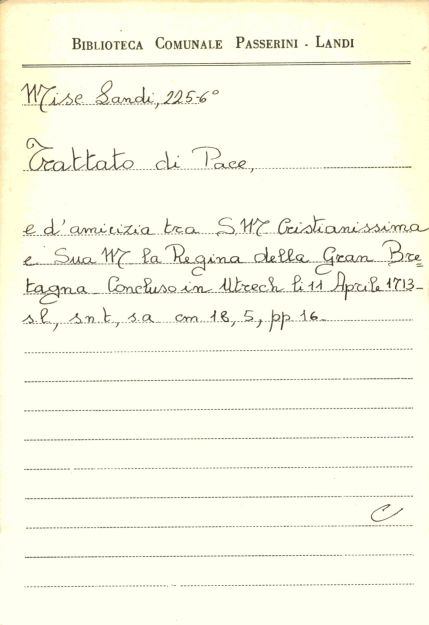 BIBLIOTECA COMUNALE PASSERINI - LANDI
Misc Landi, 225-6°
Trattato di Pace,
e d'amicizia tra S. M Cristianissima
e Sua M la Regina della Gran Bre=
tagna Concluso in Utrech li 11 Aprile 1713-
s. l, s n t, s a cm 18, 5, pp 16-
C